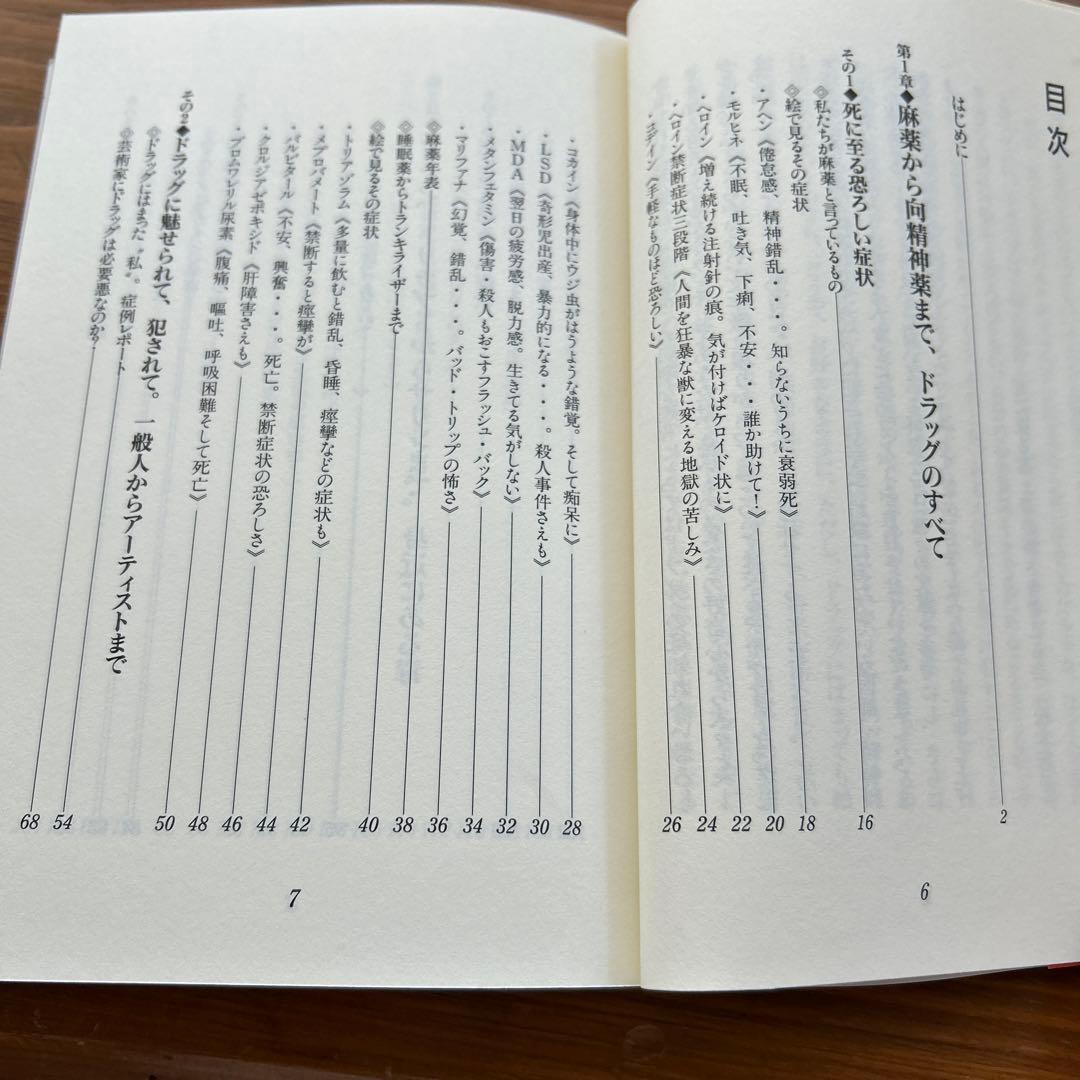 目次
はじめに 2
第1章◆麻薬から向精神薬まで、ドラッグのすべて
その1◆死に至る恐ろしい症状 16
◎私たちが麻薬と言っているもの
◎絵で見るその症状 18
・アヘン《倦怠感、精神錯乱・・・。知らないうちに衰弱死》 20
・モルヒネ《不眠、吐き気、下痢、不安・・・誰か助けて！》 22
・ヘロイン《増え続ける注射針の痕。気が付けばケロイド状に》 24
・ヘロイン禁断症状三段階《人間を狂暴な獣に変える地獄の苦しみ》 26
・コデイン《手軽なものほど恐ろしい》
6
・コカイン《身体中にウジ虫がはうような錯覚。そして痴呆に》 28
・LSD《奇形児出産、暴力的になる・・・。殺人事件さえも》 30
・MDA《翌日の疲労感、脱力感。生きてる気がしない》 32
・メタンフェタミン《傷害・殺人もおこすフラッシュ・バック》 34
・マリファナ《幻覚、錯乱・・・。バッド・トリップの怖さ》 36
◎麻薬年表 38
◎睡眠薬からトランキライザーまで 40
◎絵で見るその症状
・トリアゾラム《多量に飲むと錯乱、昏睡、痙攣などの症状も》 42
・メプロバメート《禁断すると痙攣が》 44
・バルビタール《不安、興奮・・・。死亡。禁断症状の恐ろしさ》 46
・クロルジアゼポキシド《肝障害さえも》 48
・ブロムワレリル尿素《腹痛、嘔吐、呼吸困難そして死亡》 50
その2◆ドラッグに魅せられて、犯されて。一般人からアーティストまで
◎ドラッグにはまった“私”。症例レポート 54
◎芸術家にドラッグは必要悪なのか？ 68
7